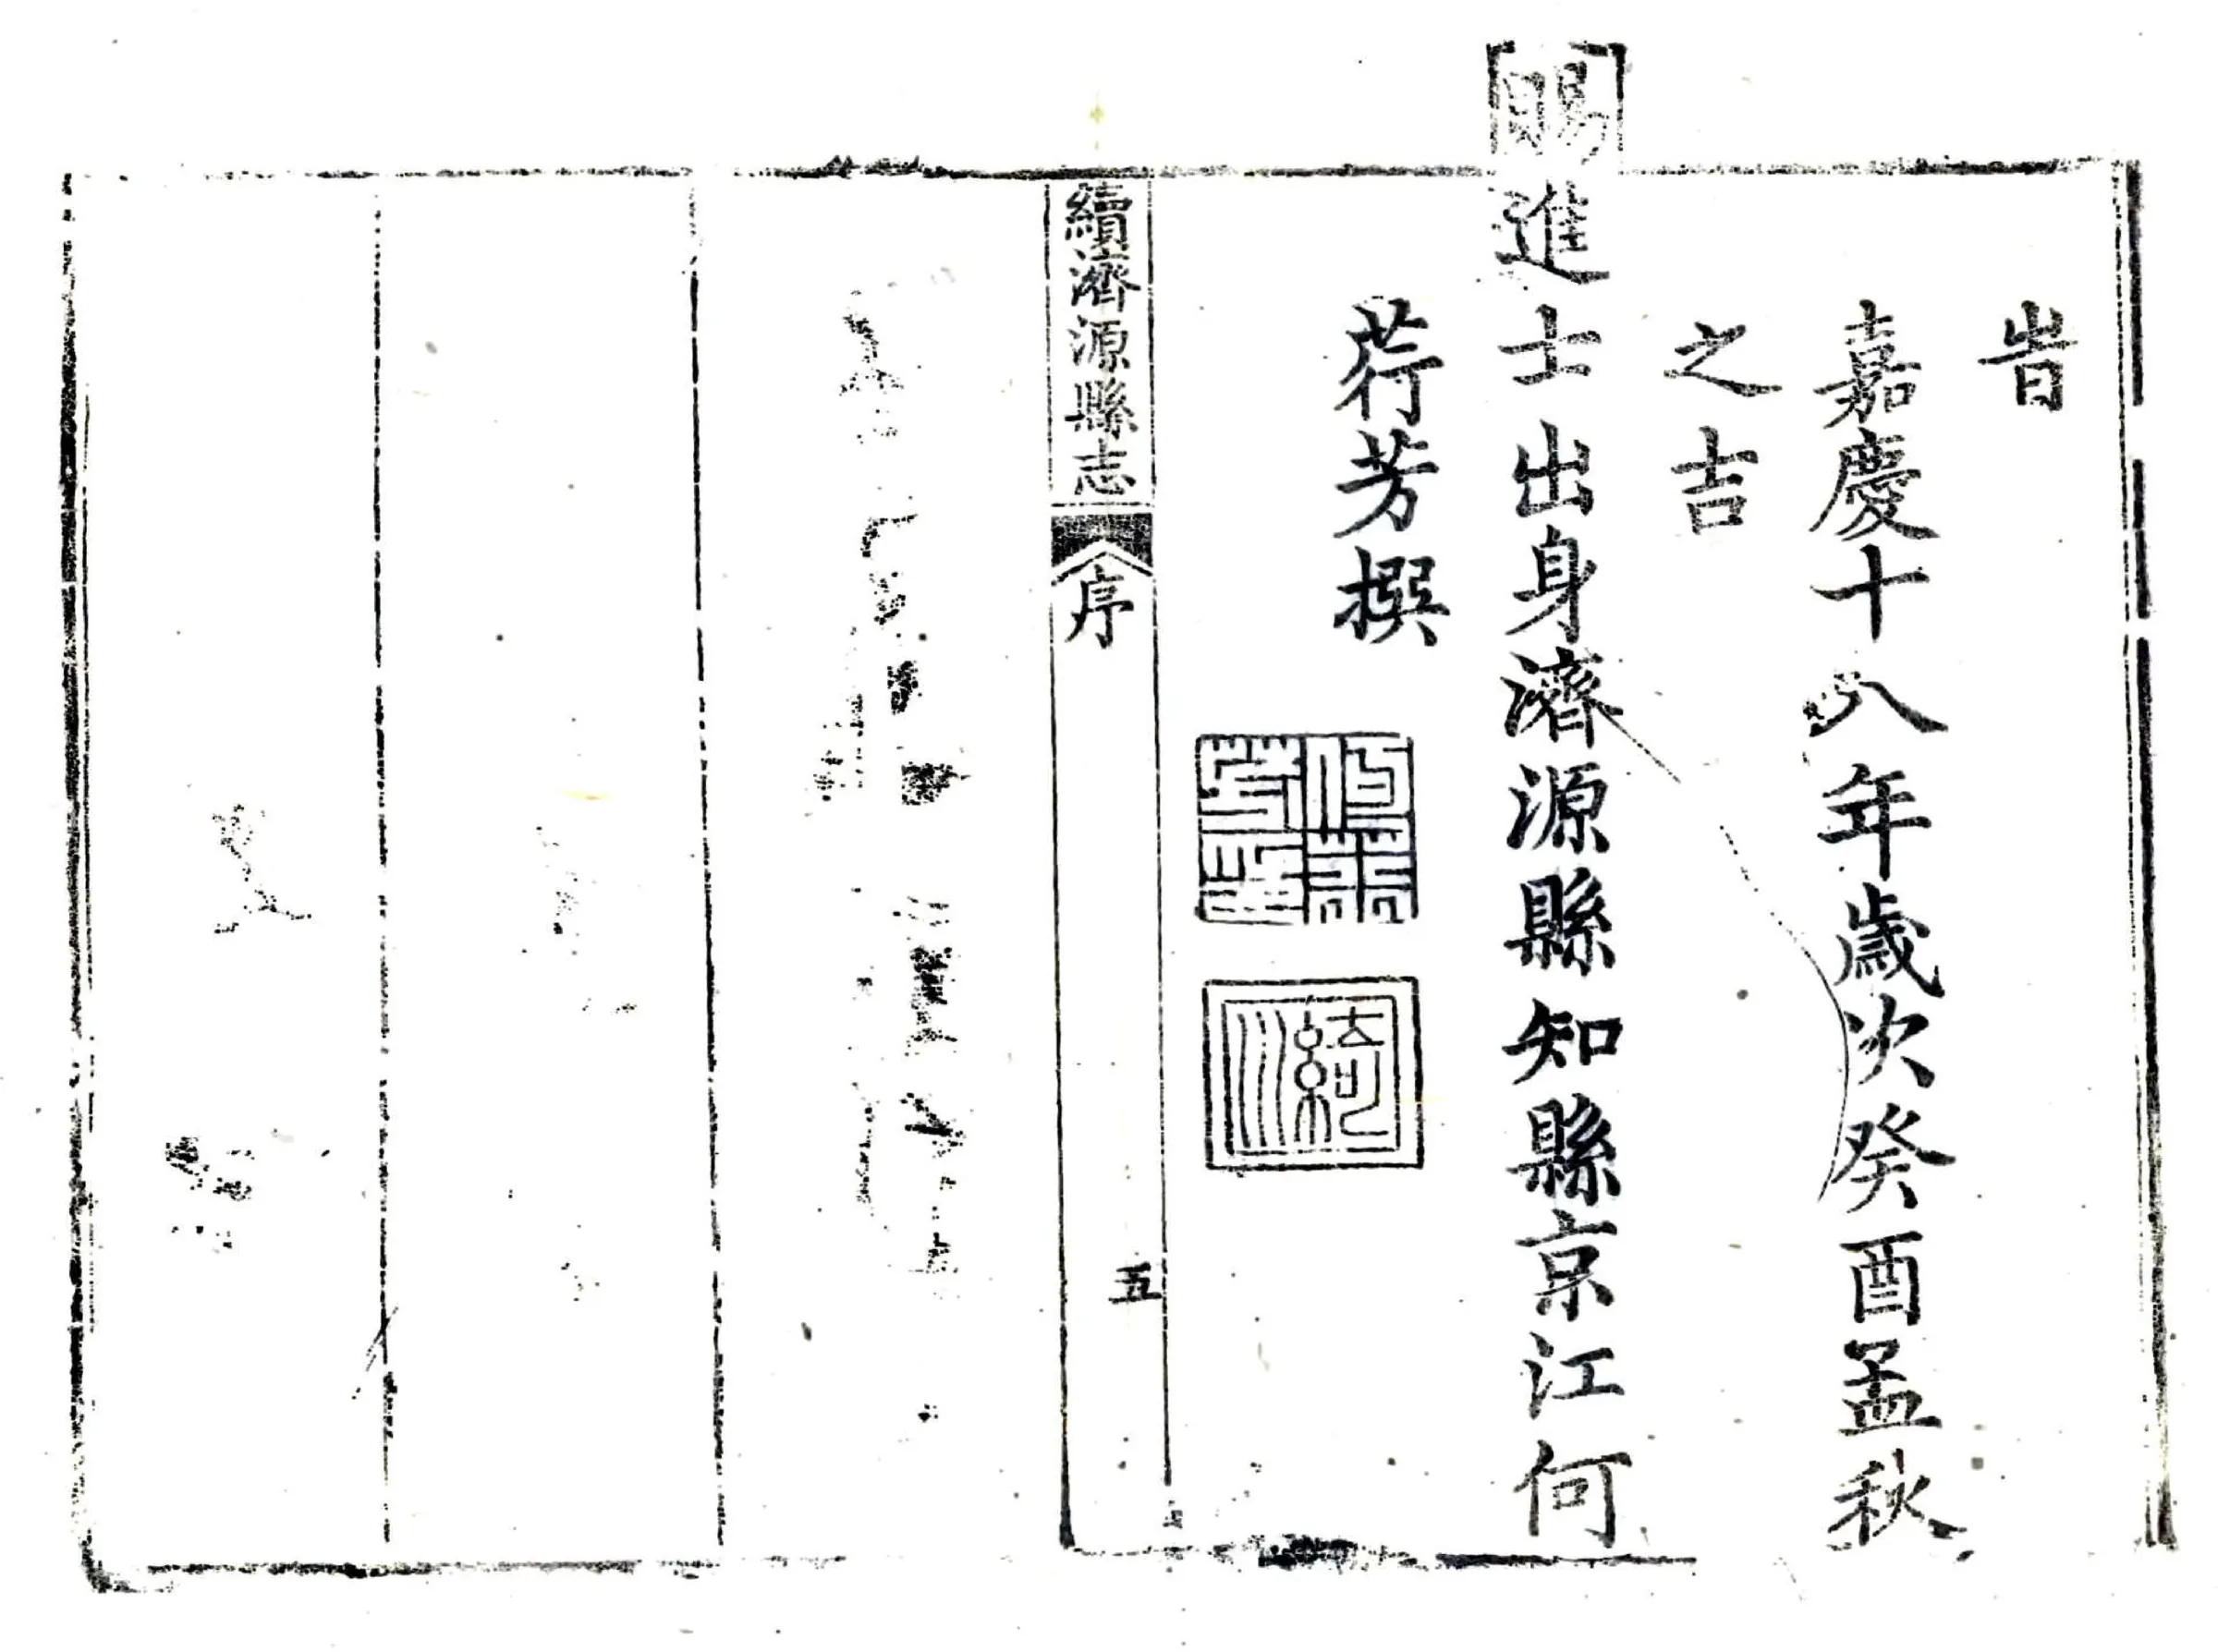 旹
嘉慶十八年歲次癸酉孟秋
之吉
賜進士出身濟源縣知縣京江何
荇芳撰
續濟源縣志
序
五